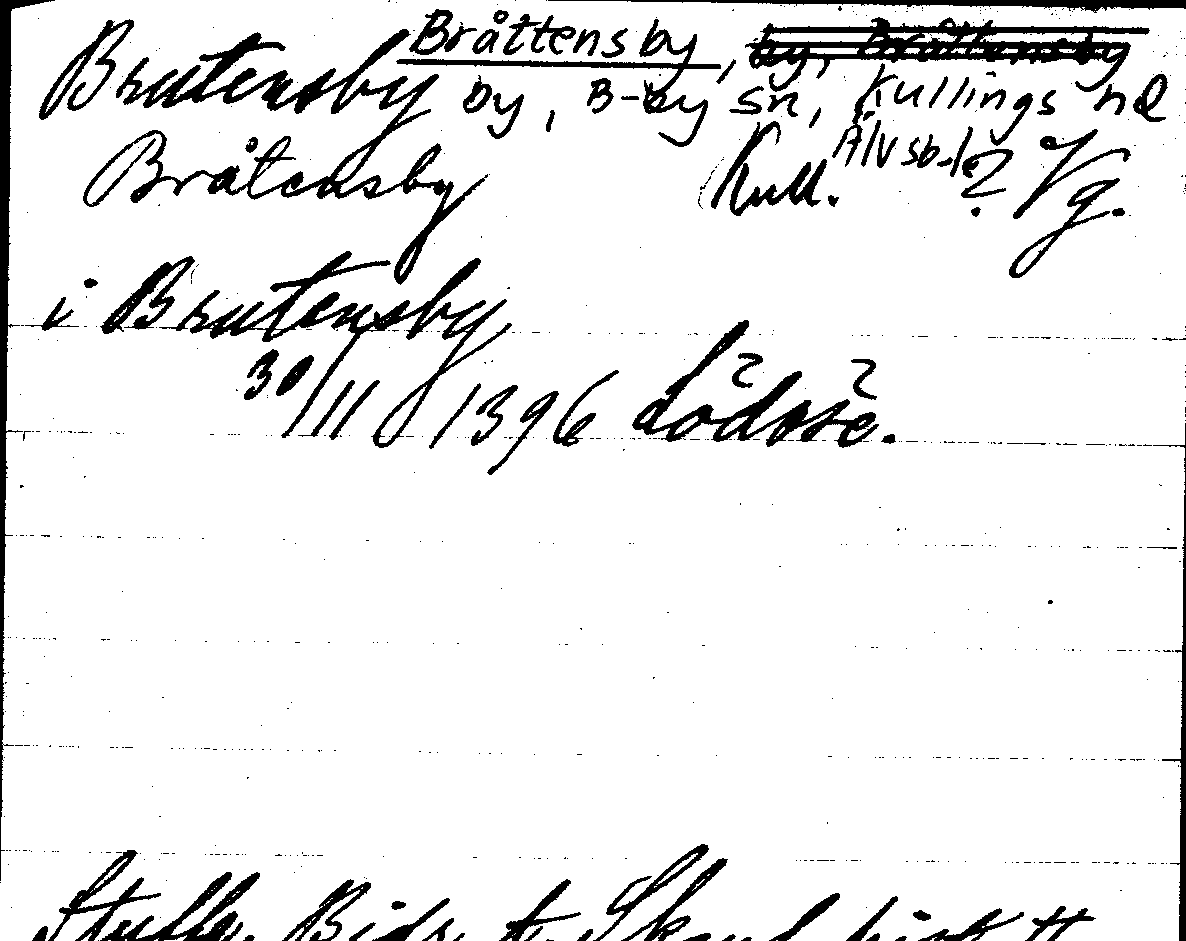 Brutensby Bråttensby, by, Bråttensby
by, B-by sn, Kullings hd
Bråtensby Kull. Älvsb. l. ? Vg.
i Brutensby
30/11 1396 Lödöse.
Styffe, Bidr. t. Skand. hist. II